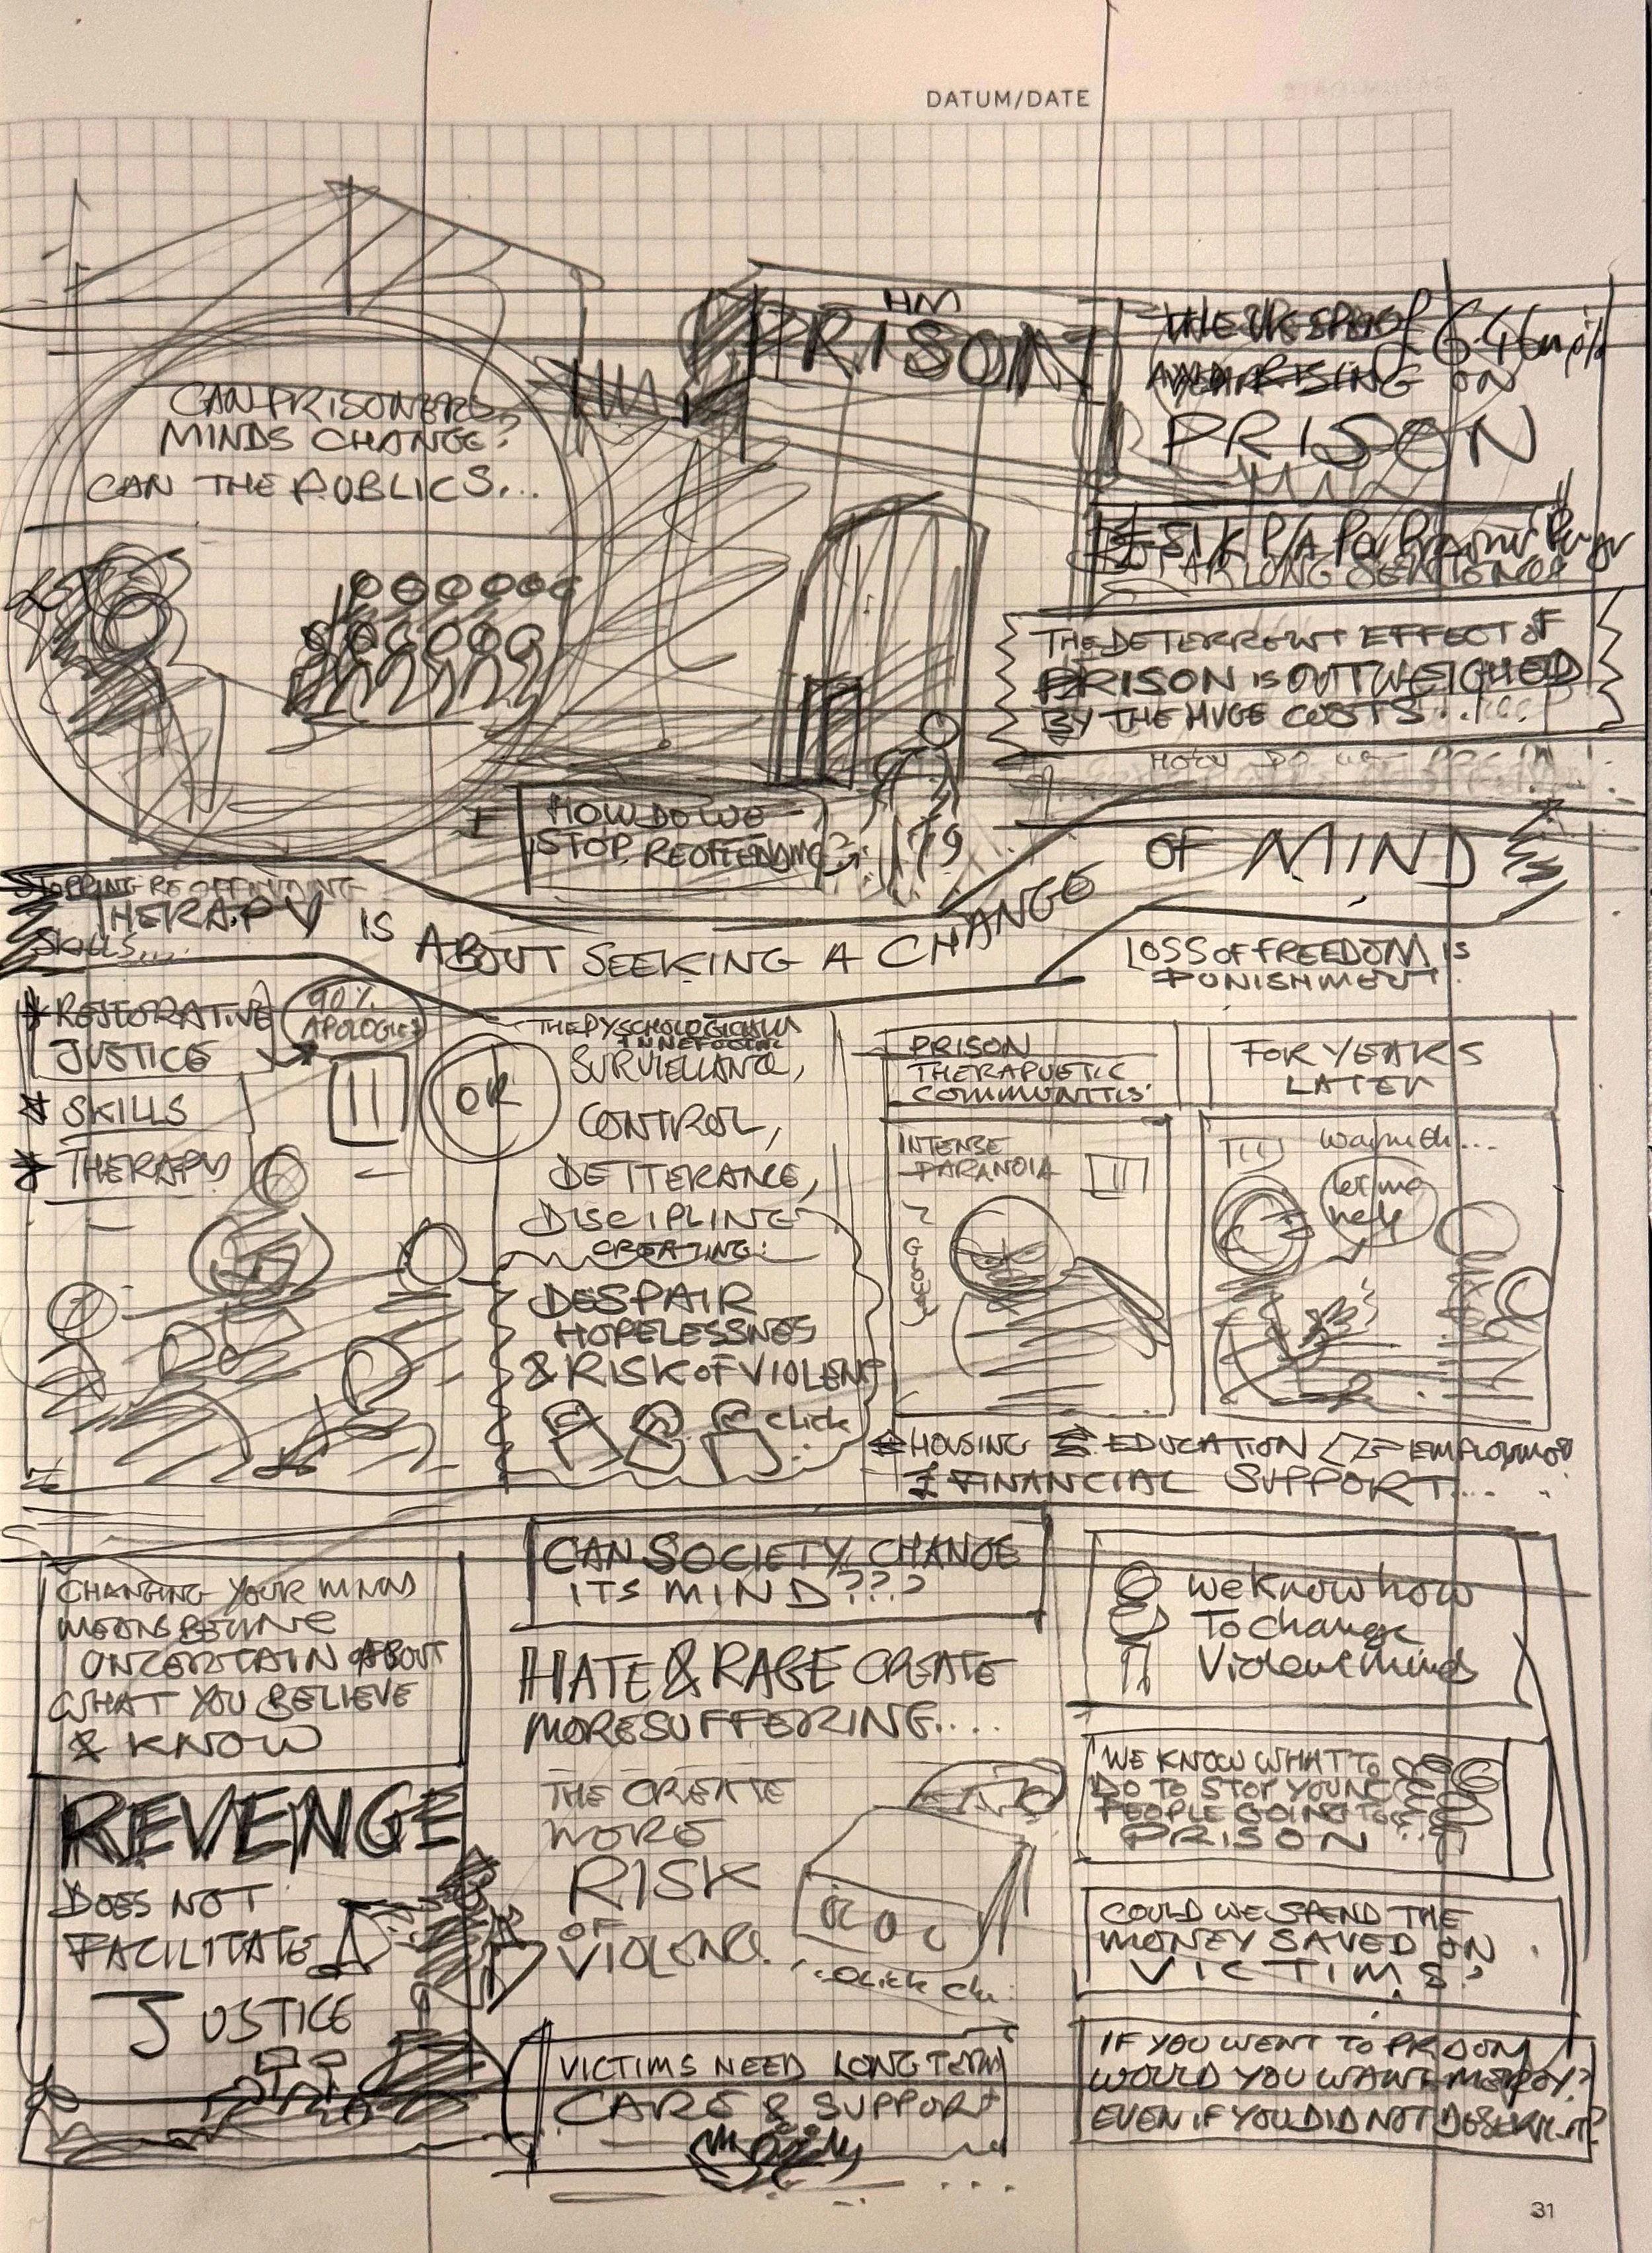 DATUM/DATE
CAN PRISONERS
MINDS CHANGE?
CAN THE PUBLICS...
HM
PRISON
6.46
RISING ON
PRISON
P/A Per
LONG SENTENCE
THE DETERRENT EFFECT OF
PRISON IS OUTWEIGHED
BY THE HUGE COSTS...
HOW DO WE
STOP REOFFENDING?
STOPPING REOFFENDING
THERAPY IS ABOUT SEEKING A CHANGE OF MIND
SKILLS....
LOSS OF FREEDOM IS
PUNISHMENT.
RESTORATIVE
JUSTICE
SKILLS
THERAPY
90%
APOLOGIES
OR
SURVIELLANCE,
CONTROL,
DETTERANCE,
DISCIPLINE
CREATING:
DESPAIR
HOPELESSNES
& RISK OF VIOLENC
click
PRISON
THERAPUETIC
COMMUNITIES
FOR YEARS
LATER
INTENSE
PARANOIA
let me
help
HOUSING EDUCATION
£ FINANCIAL SUPPORT....
CHANGING YOUR MIND
MEANS BEING
UNCERTAIN ABOUT
WHAT YOU BELIEVE
& KNOW
CAN SOCIETY CHANGE
ITS MIND???
HATE & RAGE CREATE
MORE SUFFERING....
THE CREATE
MORE
RISK
OF
VIOLENCE.
CLICK
We know how
To change
Violent minds
WE KNOW WHAT TO
DO TO STOP YOUNG
PEOPLE GOING TO
PRISON
COULD WE SPEND THE
MONEY SAVED ON
VICTIMS?
REVENGE
DOES NOT
FACILITATE
JUSTICE
VICTIMS NEED LONG TERM
CARE & SUPPORT
IF YOU WENT TO PRISON
WOULD YOU WANT MERCY?
EVEN IF YOU DID NOT DESERVE IT?
31